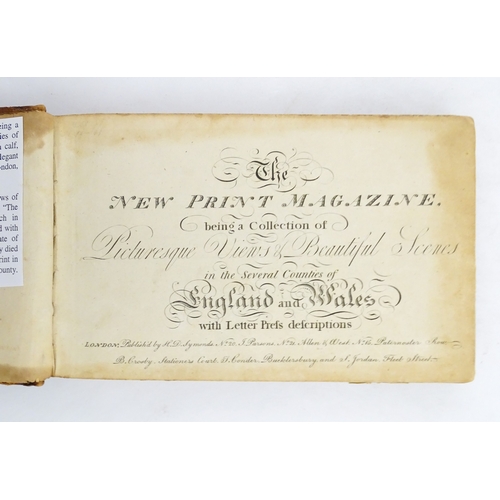 eing a
ies of
calf,
legant
ondon,
ws of
"The
ch in
d with
ate of
y died
rint in
ounty.
The
NEW PRINT MAGAZINE.
being a Collection of
Picturesque Views & Beautiful Scenes
in the Several Counties of
England and Wales
with Letter Preſs deſcriptions
LONDON; Published by H.D. Symonds Nº 20. J. Parsons Nº 21. Allen & West Nº 15. Paternoster Row
B. Crosby, Stationers Court. B. Conder, Bucklersbury and S. Jordan Fleet Street.